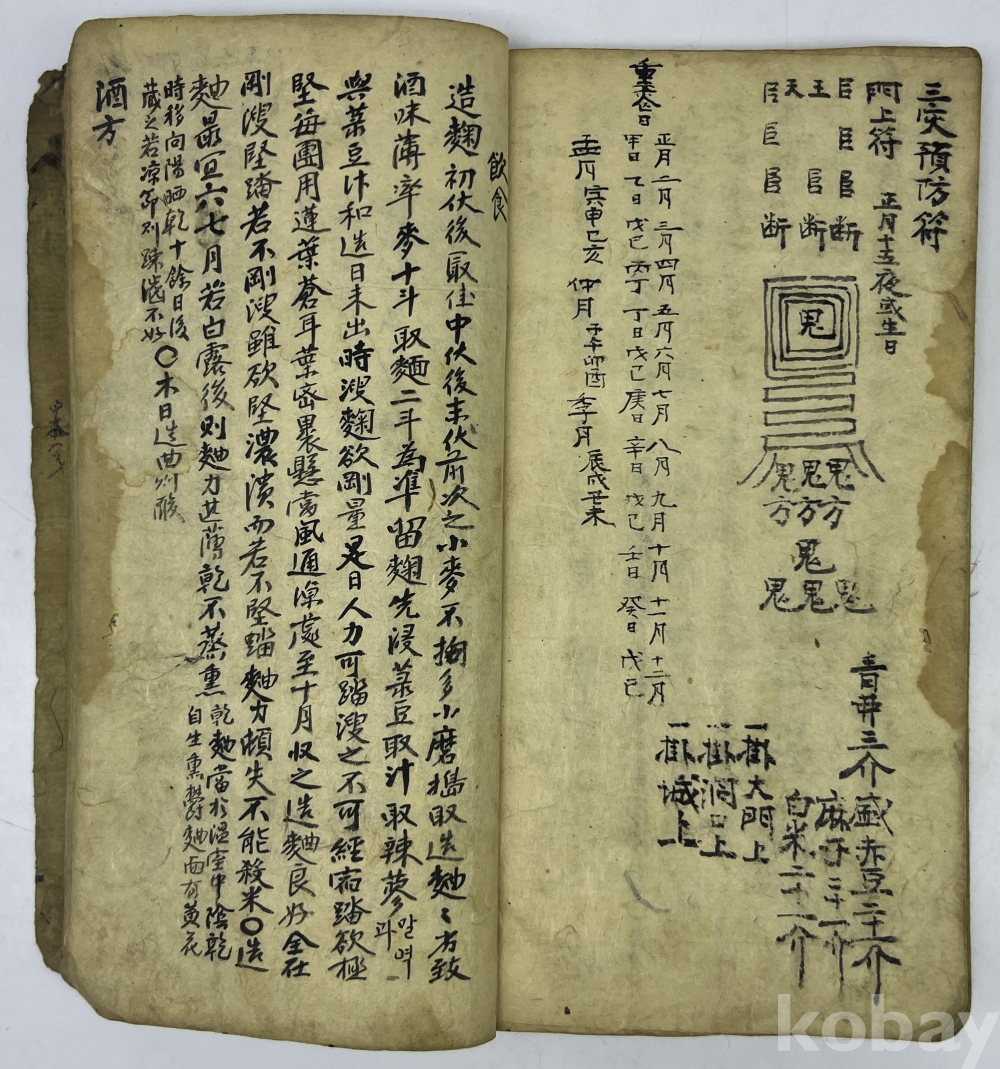 三灾預防符
門上符 正月十五夜或生日
臣臣臣断
王臣断
天臣臣断
鬼
鬼鬼鬼
方方方
鬼
鬼鬼鬼
青井三介盛赤豆二十一介
麻子三十一介
白米二十一介
一掛大門上
一掛洞口上
一掛城上
重喪日
正月二月三月四月五月六月七月八月九月十月十一月十二月
甲日乙日戊己丙丁丁日戊己庚日辛日戊己壬日癸日戊己
孟月寅申巳亥 仲月子午卯酉 季月辰戌丑未
飮食
造麴初伏後最佳中伏後末伏前次之小麥不拘多小磨搗取造麯〻方致
酒味薄率麥十斗取麵二斗為準留麴先浸菉豆取汁取辣蓼말역과
與菉豆汁和造日未出時溲麴欲剛量是日人力可踏溲之不可經宿踏欲極
堅每團用蓮葉蒼耳葉密裹懸當風通凉處至十月収之造麯良好全在
剛溲堅踏若不剛溲雖欲堅濃潰而若不堅踏麯力頓失不能殺米〇造
麯最宜六七月若白露後則麯力甚薄乾不蒸熏乾麯當於温室中陰乾
自生熏欝麯面有黃花
時移向陽晒乾十餘日後
藏之若凉節則踈濶不好〇木日造曲則酸
酒方